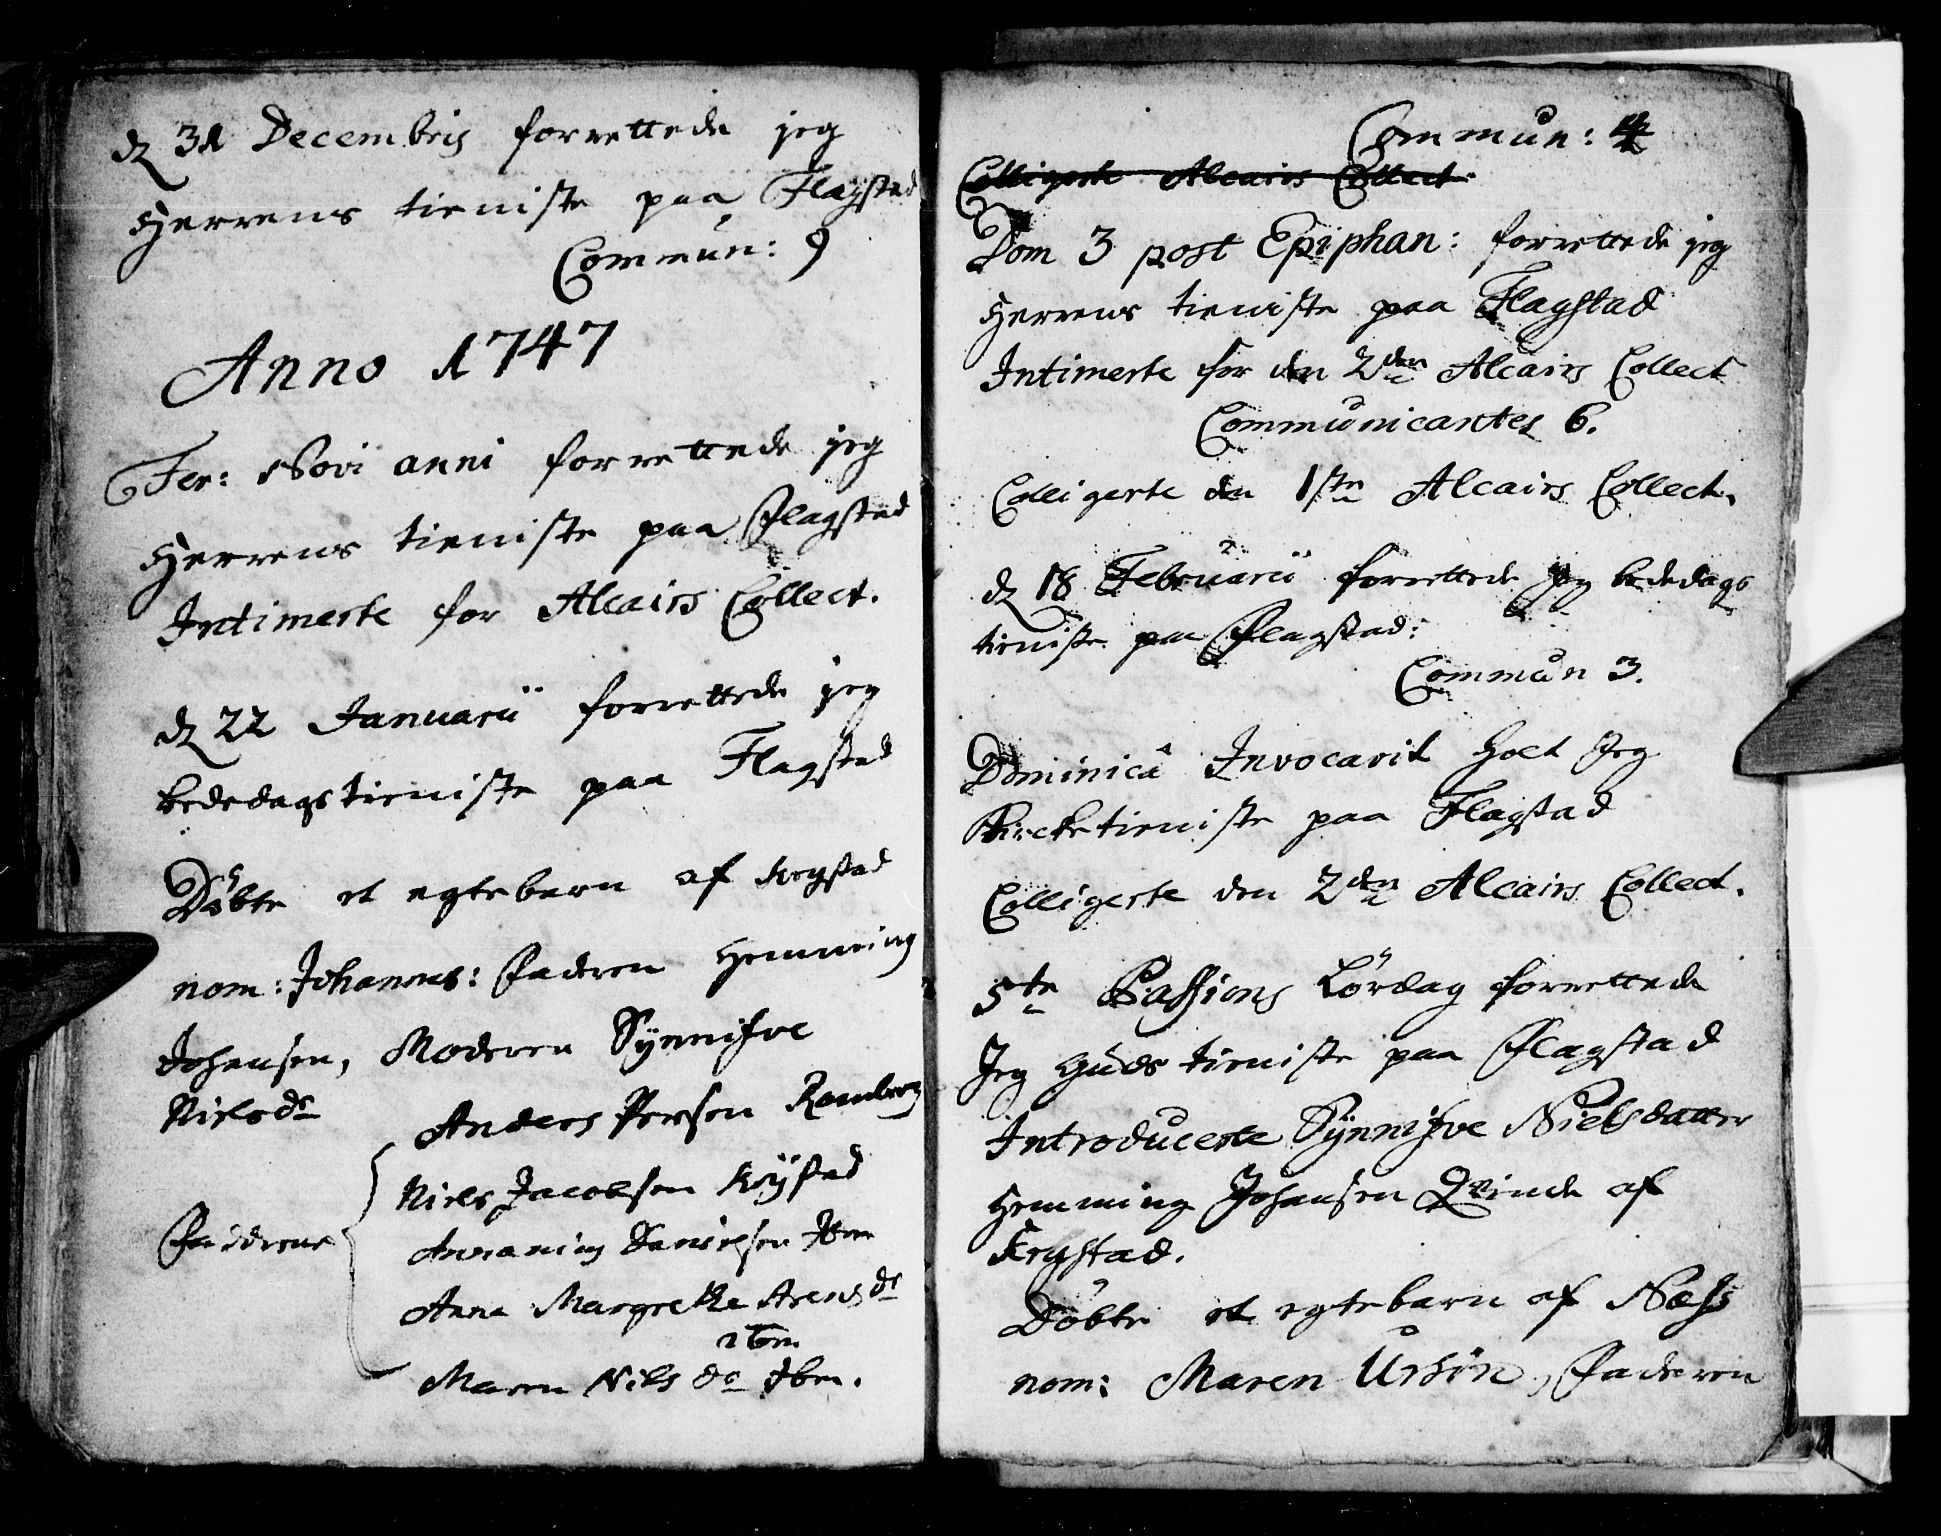 dz 31 Decembris forrettede jeg
Herrens tieniste paa Flagstad
Commun: 9
Anno 1747
Fer: Novi anni forrettede jeg
Herrens tieniste paa Flagstad
Intimerte for Alcairs Collect.
dz 22 Januarii forrettede jeg
bededags tieniste paa Flagstad
Døbte et egtebarn af Krystad
nom: Johannes: Faderen Hemming
Johansen, Moderen Synnifve
Nielsdr
Anders Persen Ramberg
Niels Jacobsen Krystad
Fadderne Danielsen Item
Anna Margrethe Arensdr
item
Maren Nils dr Ibm.
Commun: 4
Colligerte Alcairs Collect
Dom 3 post Epiphan: forrettede jeg
Herrens tieniste paa Flagstad
Intimerte for den 2den Alcairs Collect
Communicantes 6.
Colligerte den 1ste Alcairs Collect.
dz 18 Februarii forrettede Jeg bededags
tieniste paa Flagstad:
Commun 3.
Dominica Invocavit holt Jeg
Kircketieniste paa Flagstad
Colligerte den 2den Alcairs Collect.
5te Passions Lördag forrettede
Jeg Guds tieniste paa Flagstad
Introducerte Synnifve Nielsdatter
Hemming Johansen Qvinde af
Krystad.
Döbte et egtebarn af Næss
nom: Maren Ursin, Faderen